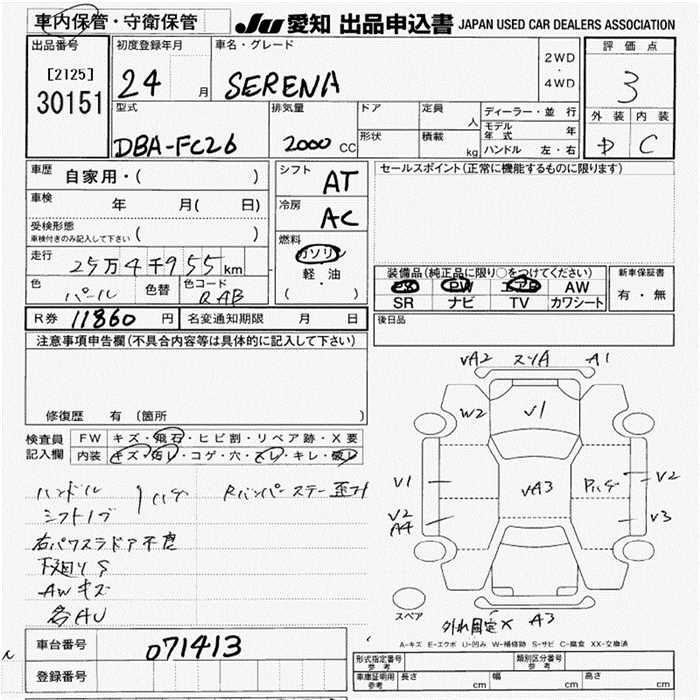 車内保管・守衛保管
JU 愛知 出品申込書 JAPAN USED CAR DEALERS ASSOCIATION
出品番号
[2125]
30151
初度登録年月
24 月
車名・グレード
SERENA
2WD
・
4WD
評価点
3
外装 内装
D C
型式
DBA-FC26
排気量
2000 CC
ドア
定員
人
形状
積載
kg
ディーラー・並行
モデル年式 年
ハンドル 左・右
車歴 自家用・( )
車検 年 月( 日)
受検形態
車検付きのみ記入して下さい ( )
走行
25万4千955km
色
パール
色替
色コード
QAB
シフト
AT
冷房
AC
燃料
ガソリン
軽・油
( )
セールスポイント(正常に機能するものに限ります)
装備品(純正品に限り○をつけてください)
PS PW エアB AW
SR ナビ TV カワシート
新車保証書
有・無
R券 11860 円
名変通知期限 月 日
後日品
注意事項申告欄(不具合内容等は具体的に記入して下さい)
修復歴 有(箇所 )
検査員
記入欄
FW キズ・飛石・ヒビ割・リペア跡・X要
内装 キズ・汚レ・コゲ・穴・スレ・キレ・破レ
ハンドル
シフトノブ
ハゲ
Rバンパーステー歪み
右パワスラドア不良
下廻りS
AWキズ
各AU
VA2 スリA A1
W2
V1
V1
VA3
Pハゲ
V2
V2
A4
V3
スペア
外れ固定X A3
A-キズ E-エクボ U-凹み W-補修跡 S-サビ C-腐食 XX-交換済
車台番号
071413
登録番号
形式指定番号
参考
類別区分番号
参考
車庫証明用
参考
長さ cm
幅 cm
高さ cm